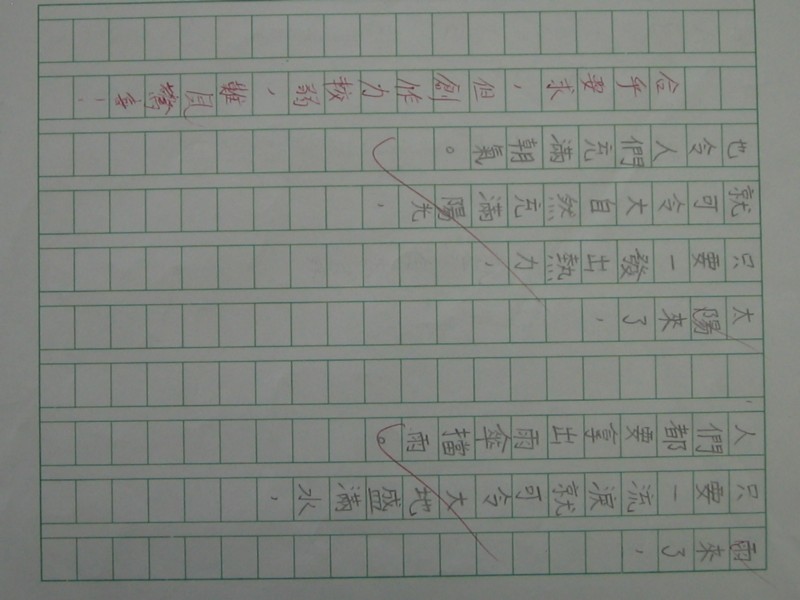 雨來了，
只要一流淚就可令大地盛滿水，
人們都要拿出雨傘擋雨。
太陽來了，
只要一發出熱力，
就可令大自然充滿陽光，
也令人們充滿朝氣。
合乎要求，但創作力較弱，難見驚喜！